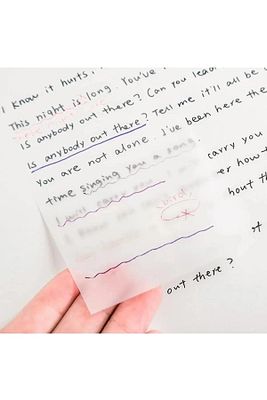 I know it hurts,
This night is long. You've
Is anybody out there? Can you lead
Is anybody out there? Tell me it'll all be
You are not alone. I've been here the
time singing you a song.
I will carry you carry you
er how t
hout th
of
out there?